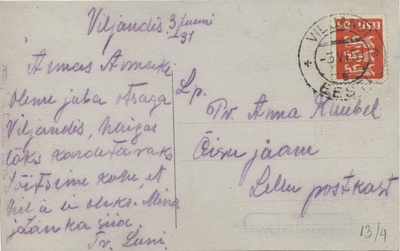 Viljandis, 3 juuni
-31
Armas Annake
oleme juba otsaga
Viljandis, haigus
läks kardetavaks
sõitsime kohe, et
hilja ei oleks. Mina
jään ka siia.
Tr. Leeni.
Lp.
Pr. Anna Kuubel
Õisu jaam
Lellu postkast
VILJANDI
EESTI
EESTI
13/4